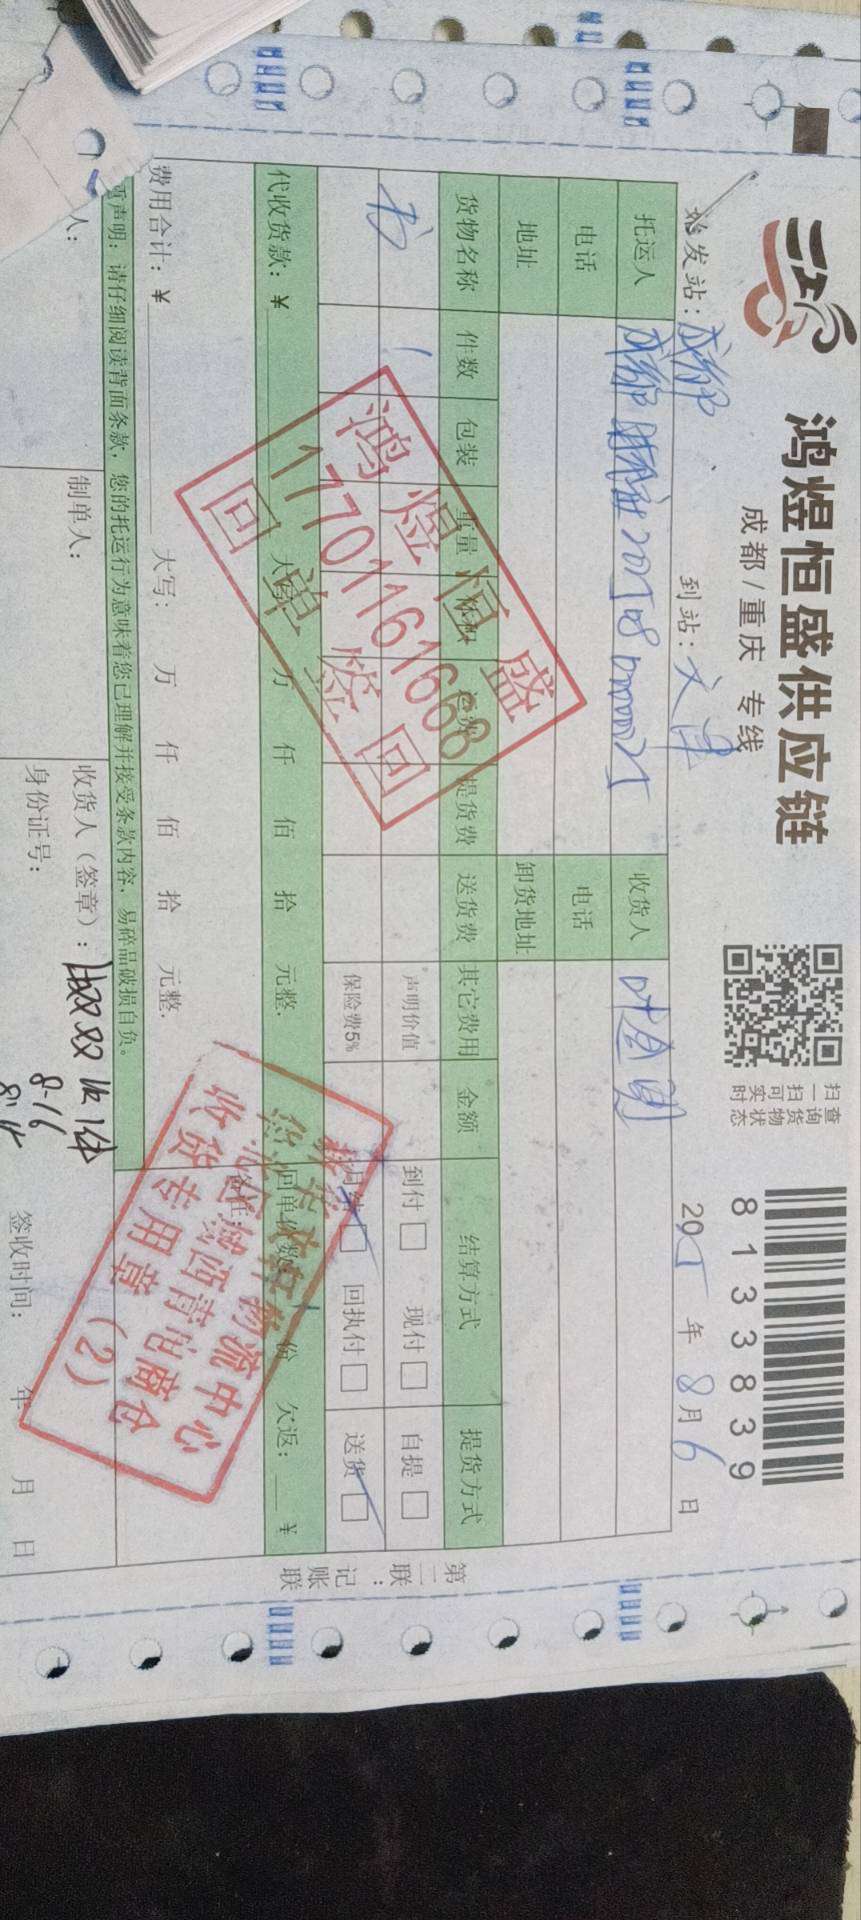 鸿煜恒盛供应链
成都/重庆 专线
扫一扫可实时
查询货物状态
8133839
始发站: 成都 到站: 天津 2025年8月6日
托运人 成都 收货人 叶道明
电话 电话
地址 卸货地址
货物名称 件数 包装 重量 体积 运费 提货费 送货费 其它费用 金额 结算方式 提货方式
书 1 声明价值 到付 现付 自提
保险费5% 月结 回执付 送货
代收货款: ¥ 大写: 万 仟 佰 拾 元整. 回单份数: 1 份 欠返: ¥
费用合计: ¥ 大写: 万 仟 佰 拾 元整. 备注:
声明: 请仔细阅读背面条款, 您的托运行为意味着您已理解并接受条款内容, 易碎品破损自负。
人: 制单人: 收货人(签章): 签收时间: 年 月 日
身份证号:
8-16
第二联: 记账联
鸿煜恒盛
17701161668
回单签回
物流中心
西青电商仓
收货专用章(2)